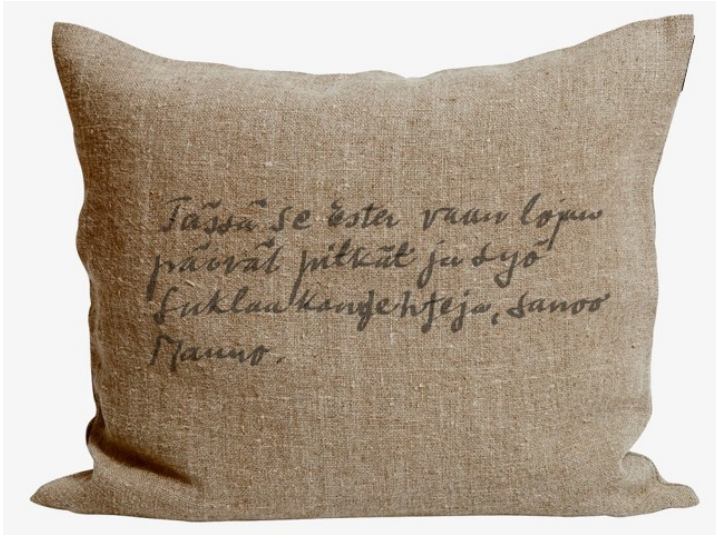 Tässä se Ester vaan lojuu
päivät pitkät ja syö
Suklaakonfehteja, sanoo
Manno.